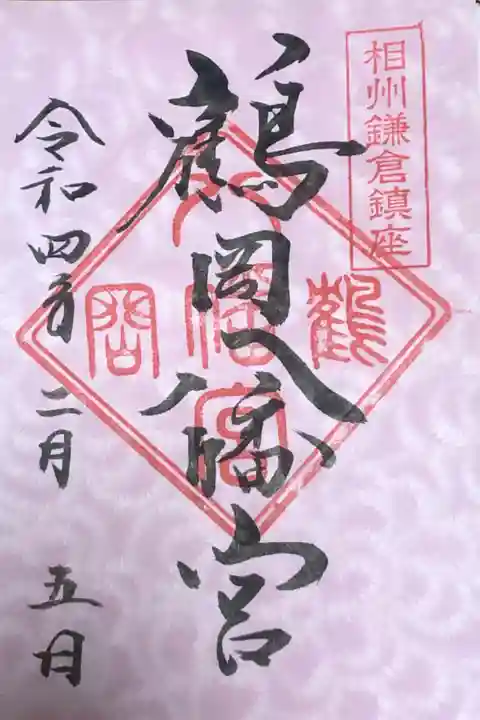 相州鎌倉鎮座
鶴岡八幡宮
令和四年二月五日
鶴
岡
八
幡
宮